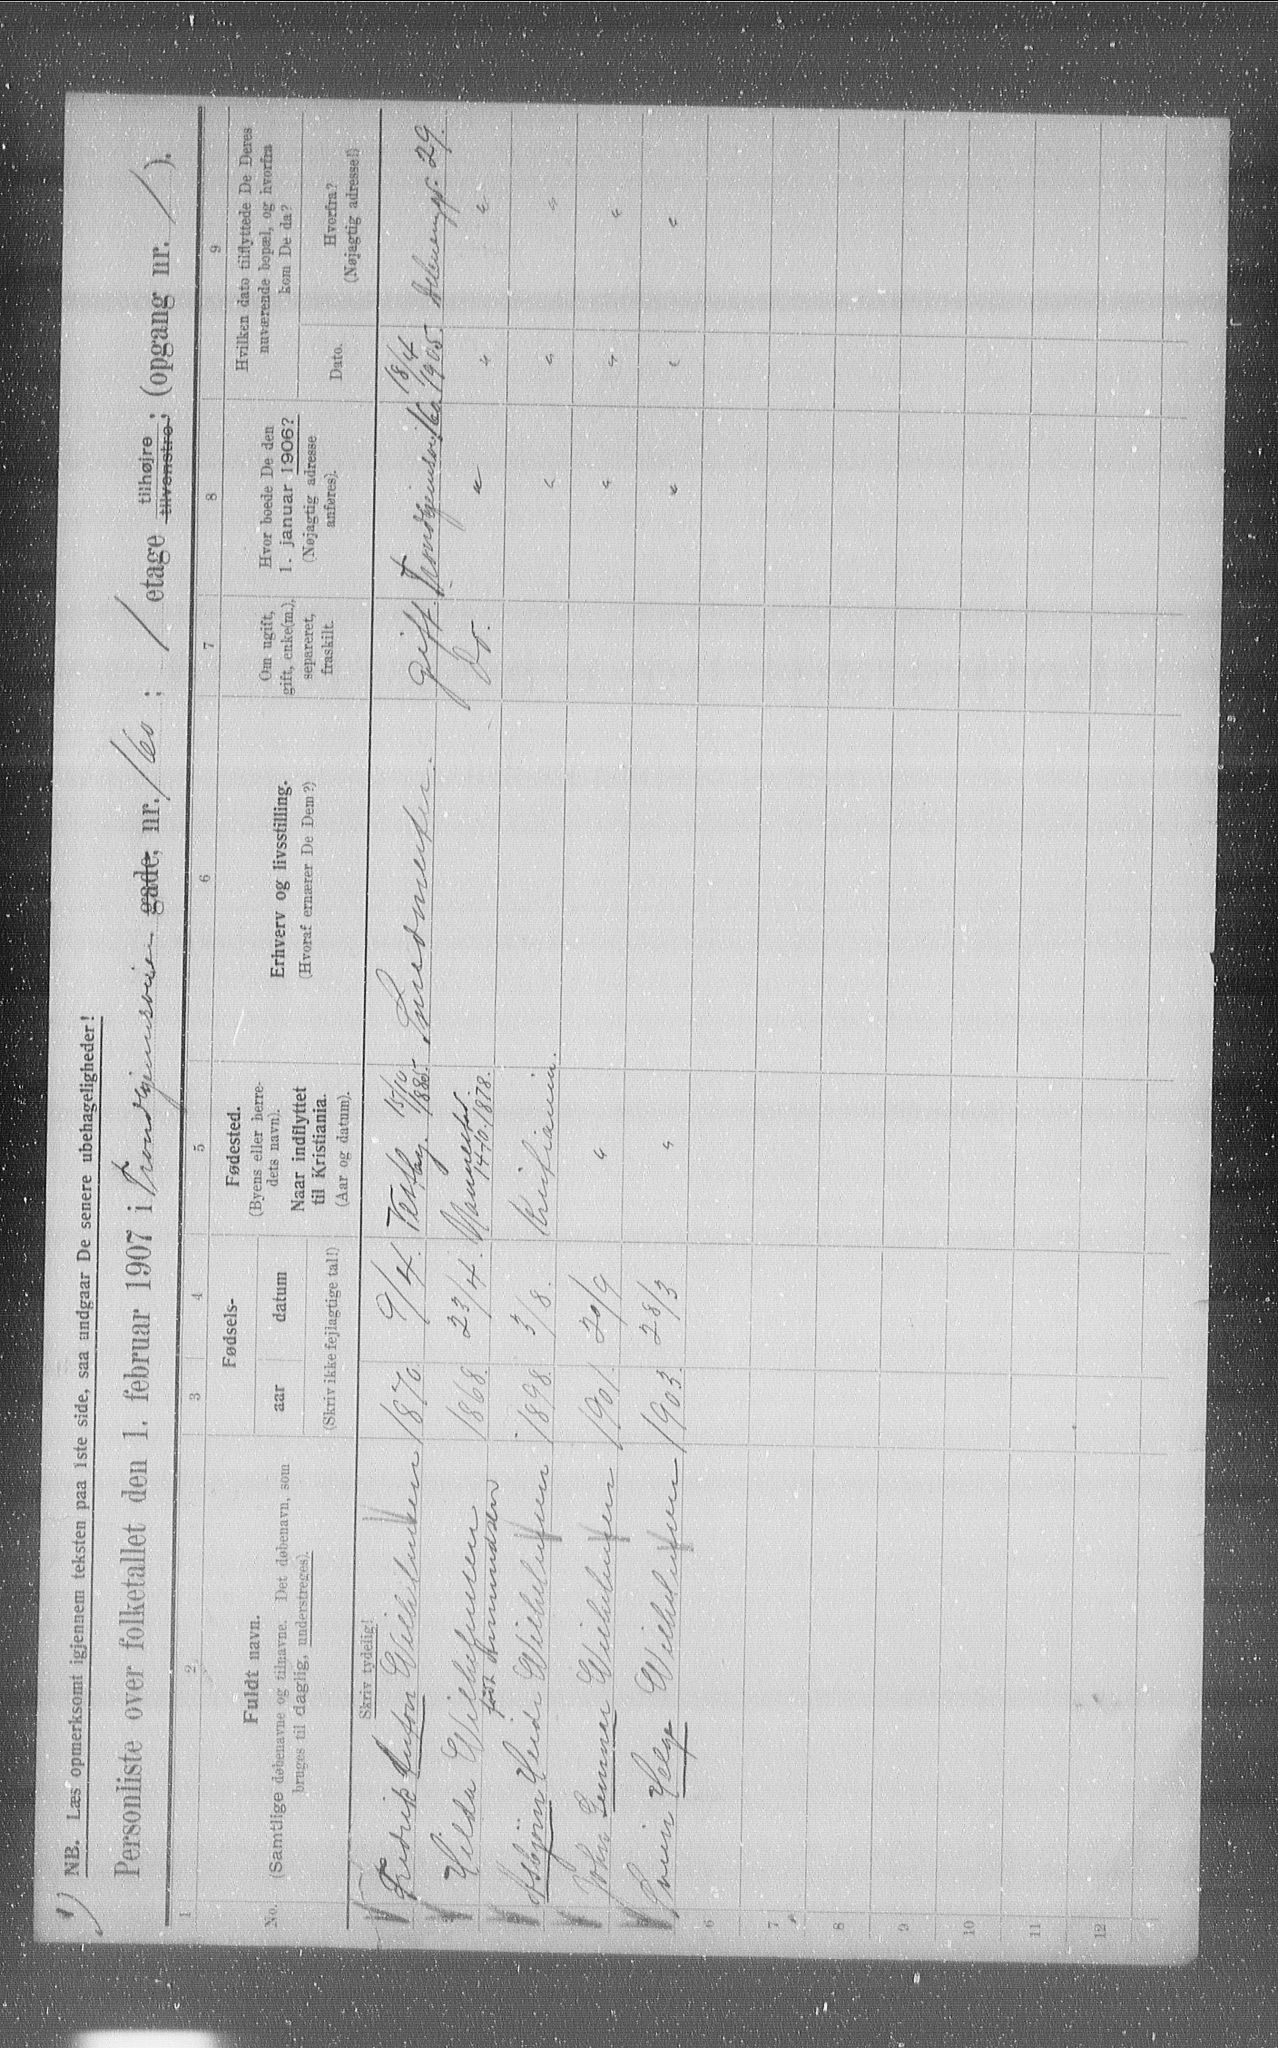 1)
NB. Læs opmerksomt igjennem teksten paa 1ste side, saa undgaar De senere ubehageligheder!
Personliste over folketallet den 1. februar 1907 i Trondhjemsveien gade, nr. 160 ; 1 etage tilhøjre ; (opgang nr. 1 ).
tilvenstre
1 2 3 4 5 6 7 8 9
No.
Fuldt navn.
(Samtlige døbenavne og tilnavne. Det døbenavn, som
bruges til daglig, understreges).
Fødsels-
aar datum
(Skriv ikke fejlagtige tal!)
Fødested.
(Byens eller herre-
dets navn).
Naar indflyttet
til Kristiania.
(Aar og datum).
Erhverv og livsstilling.
(Hvoraf ernærer De Dem?)
Om ugift,
gift, enke(m.),
separeret,
fraskilt.
Hvor boede De den
1. januar 1906?
(Nøjagtig adresse
anføres).
Hvilken dato tilflyttede De Deres
nuværende bopæl, og hvorfra
kom De da?
Dato.
Hvorfra?
(Nøjagtig adresse!)
Skriv tydelig!
Fredrik Anton Wilhelmsen 1870 9/4. 15/10 1885. Smedmester. gift. Trondhjemsvei 160 18/4 1905. 29.
Hilda Wilhelmsen 1868. 23/4. 14/10. 1878. Do. " " "
født Amundsen
Asbjörn Wilhelmsen 1898. 3/8. Kristiania. " " "
John Gunnar Wilhelmsen 1901. 20/9 " " " "
Helge Wilhelmsen 1903. 28/3 " " " "
6
7
8
9
10
11
12